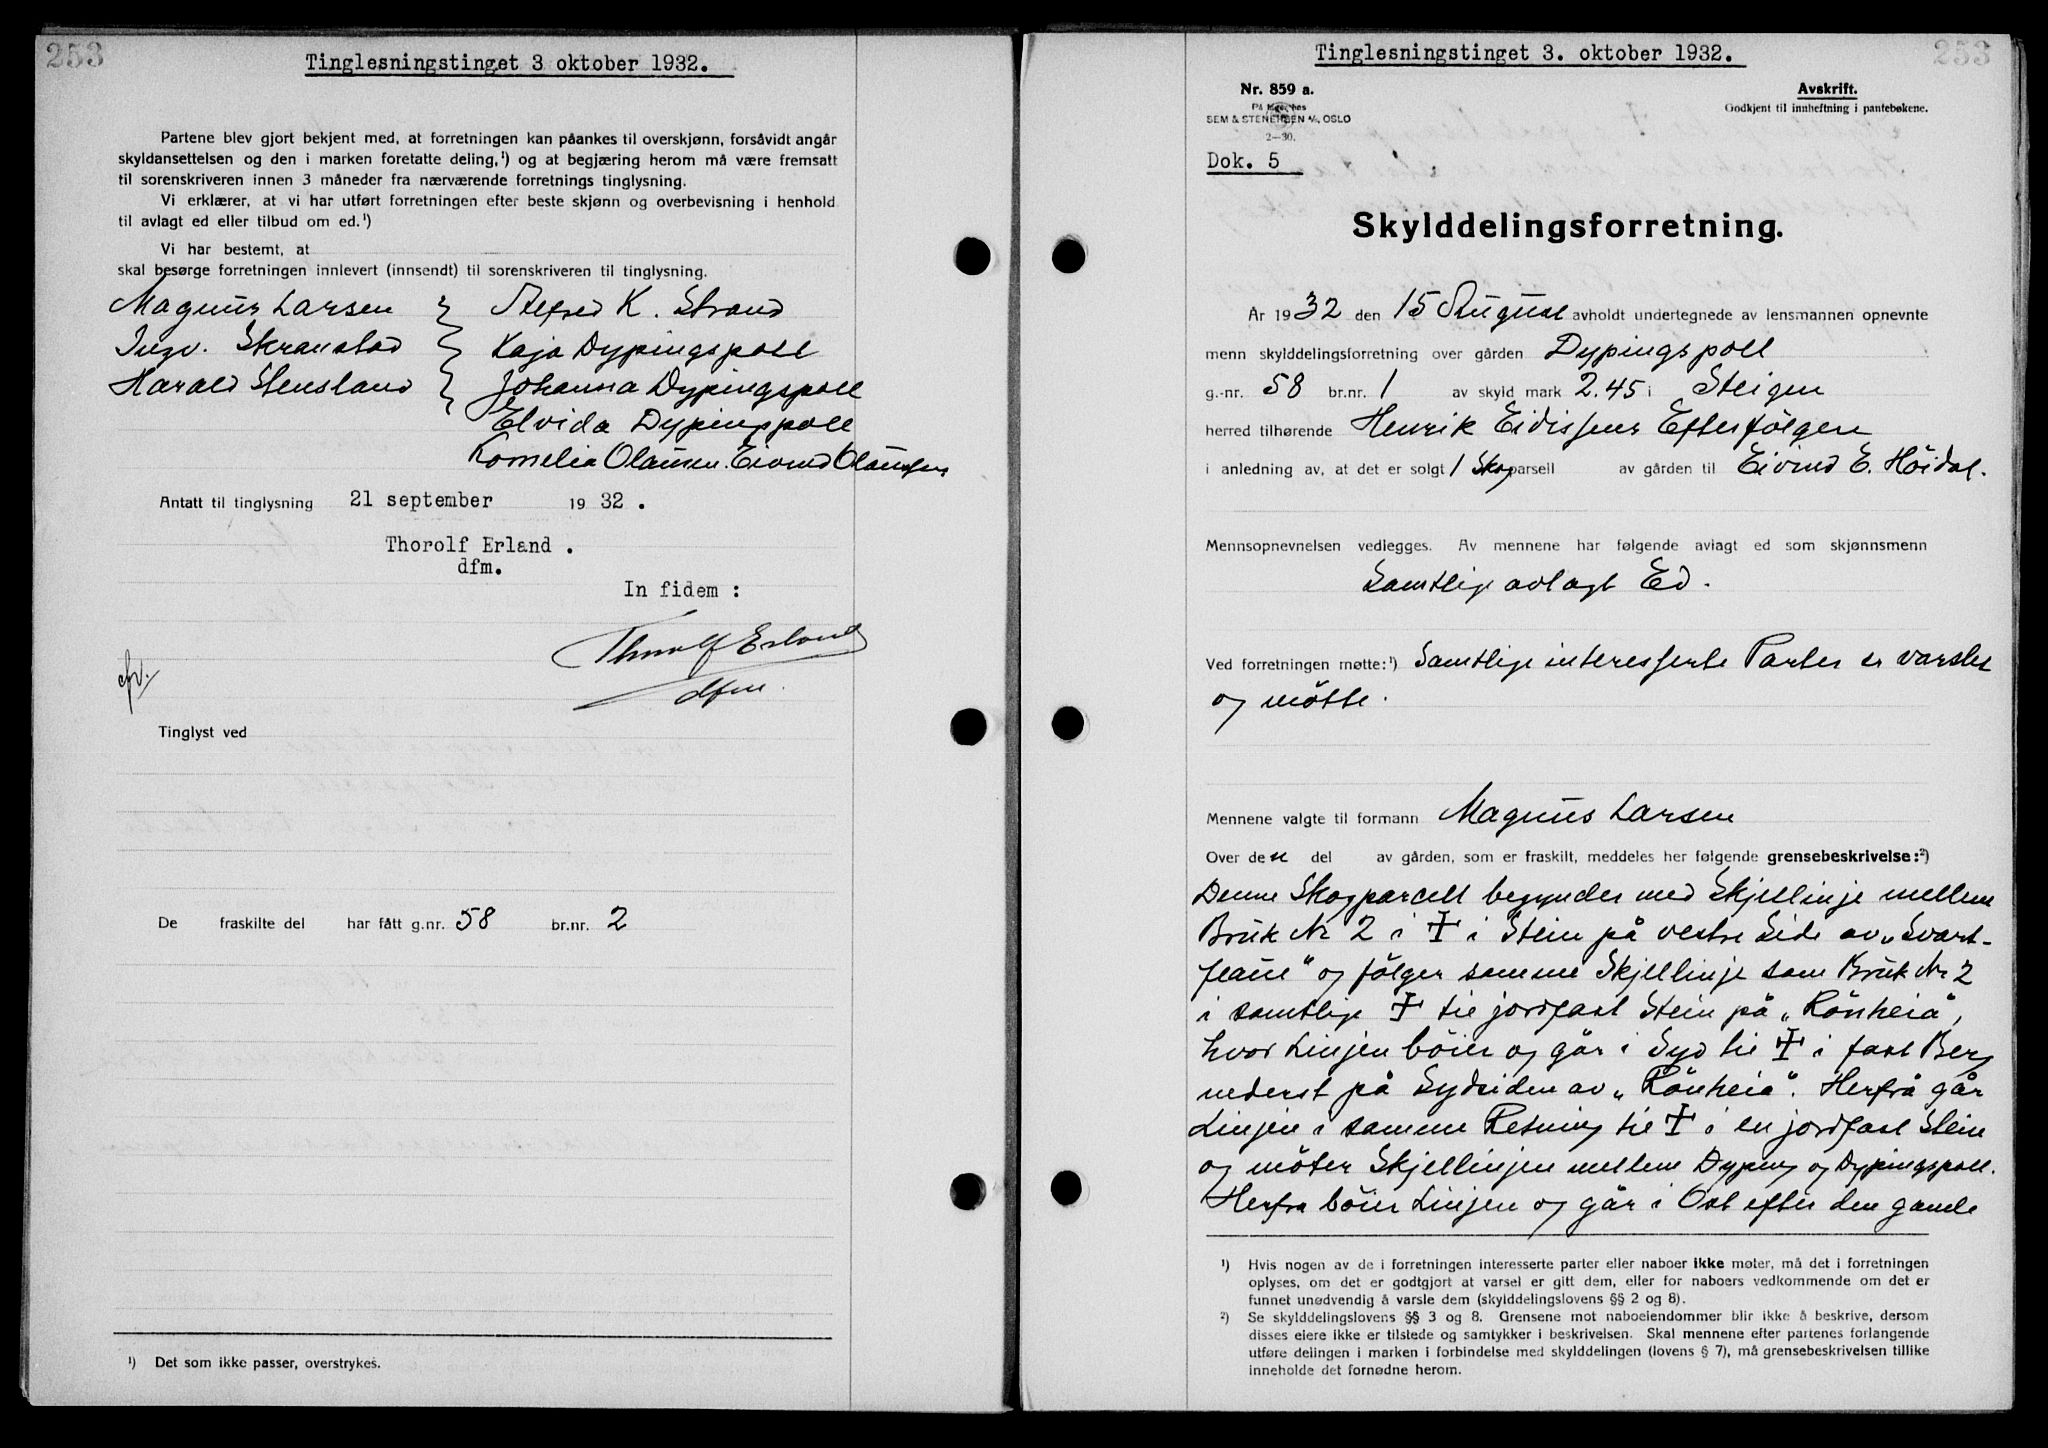 253
Tinglesningstinget 3 oktober 1932.
Partene blev gjort bekjent med, at forretningen kan påankes til overskjønn, forsåvidt angår
skyldansettelsen og den i marken foretatte deling,¹) og at begjæring herom må være fremsatt
til sorenskriveren innen 3 måneder fra nærværende forretnings tinglysning.
Vi erklærer, at vi har utført forretningen efter beste skjønn og overbevisning i henhold
til avlagt ed eller tilbud om ed.¹)
Vi har bestemt, at
skal besørge forretningen innlevert (innsendt) til sorenskriveren til tinglysning.
Magnus Larsen } Alfred K. Strand
Ingv. Skranstad } Kaja Dypingspoll
Harald Stensland } Johanna Dypingspoll
Elvida Dypingspoll
Kornelia Olaussen. Eivind Olaussen
Antatt til tinglysning 21 september 1932.
Thorolf Erland.
dfm.
In fidem :
Thorolf Erland
dfm.
Tinglyst ved
De fraskilte del har fått g.nr. 58 br.nr. 2
¹) Det som ikke passer, overstrykes.
Tinglesningstinget 3. oktober 1932.
253
Nr. 859 a.
SEM & STENERSEN A/S, OSLO
2—30.
Avskrift.
Godkjent til innheftning i pantebøkene.
Dok. 5
Skylddelingsforretning.
År 1932 den 15 August avholdt undertegnede av lensmannen opnevnte
menn skylddelingsforretning over gården Dypingspoll
g.-nr. 58 br.nr. 1 av skyld mark 2.45 i Steigen
herred tilhørende Henrik Eidissens Efterfölgere
i anledning av, at det er solgt 1 Skogparsell av gården til Eivind E. Höidal.
Mennsopnevnelsen vedlegges. Av mennene har følgende avlagt ed som skjønnsmenn
Samtlige avlagt Ed.
Ved forretningen møtte:¹) Samtlige interesserte Parter er varslet
og mötte.
Mennene valgte til formann Magnus Larsen
Over den del av gården, som er fraskilt, meddeles her følgende grensebeskrivelse:²)
Denne Skogparcell begynder med Skjellinje mellem
Bruk Nr 2 i ☩ i Stein på vestre Side av „Svart-
flaue" og fölger samme Skjellinje som Bruk Nr 2
i samtlige ☩ til jordfast Stein på „Rönheia",
hvor Linjen böier og går i Syd til ☩ i fast Berg
nederst på Sydsiden av „Rönheia". Herfrå går
Linjen i samme Retning til ☩ i en jordfast Stein
og möter Skjellinjen mellem Dyping og Dypingspoll.
Herfra böier Linjen og går i Öst efter den gamle
¹) Hvis nogen av de i forretningen interesserte parter eller naboer ikke møter, må det i forretningen
oplyses, om det er godtgjort at varsel er gitt dem, eller for naboers vedkommende om det er
funnet unødvendig å varsle dem (skylddelingslovens §§ 2 og 8).
²) Se skylddelingslovens §§ 3 og 8. Grensene mot naboeiendommer blir ikke å beskrive, dersom
disses eiere ikke er tilstede og samtykker i beskrivelsen. Skal mennene efter partenes forlangende
utføre delingen i marken i forbindelse med skylddelingen (lovens § 7), må grensebeskrivelsen tillike
inneholde det fornødne herom.